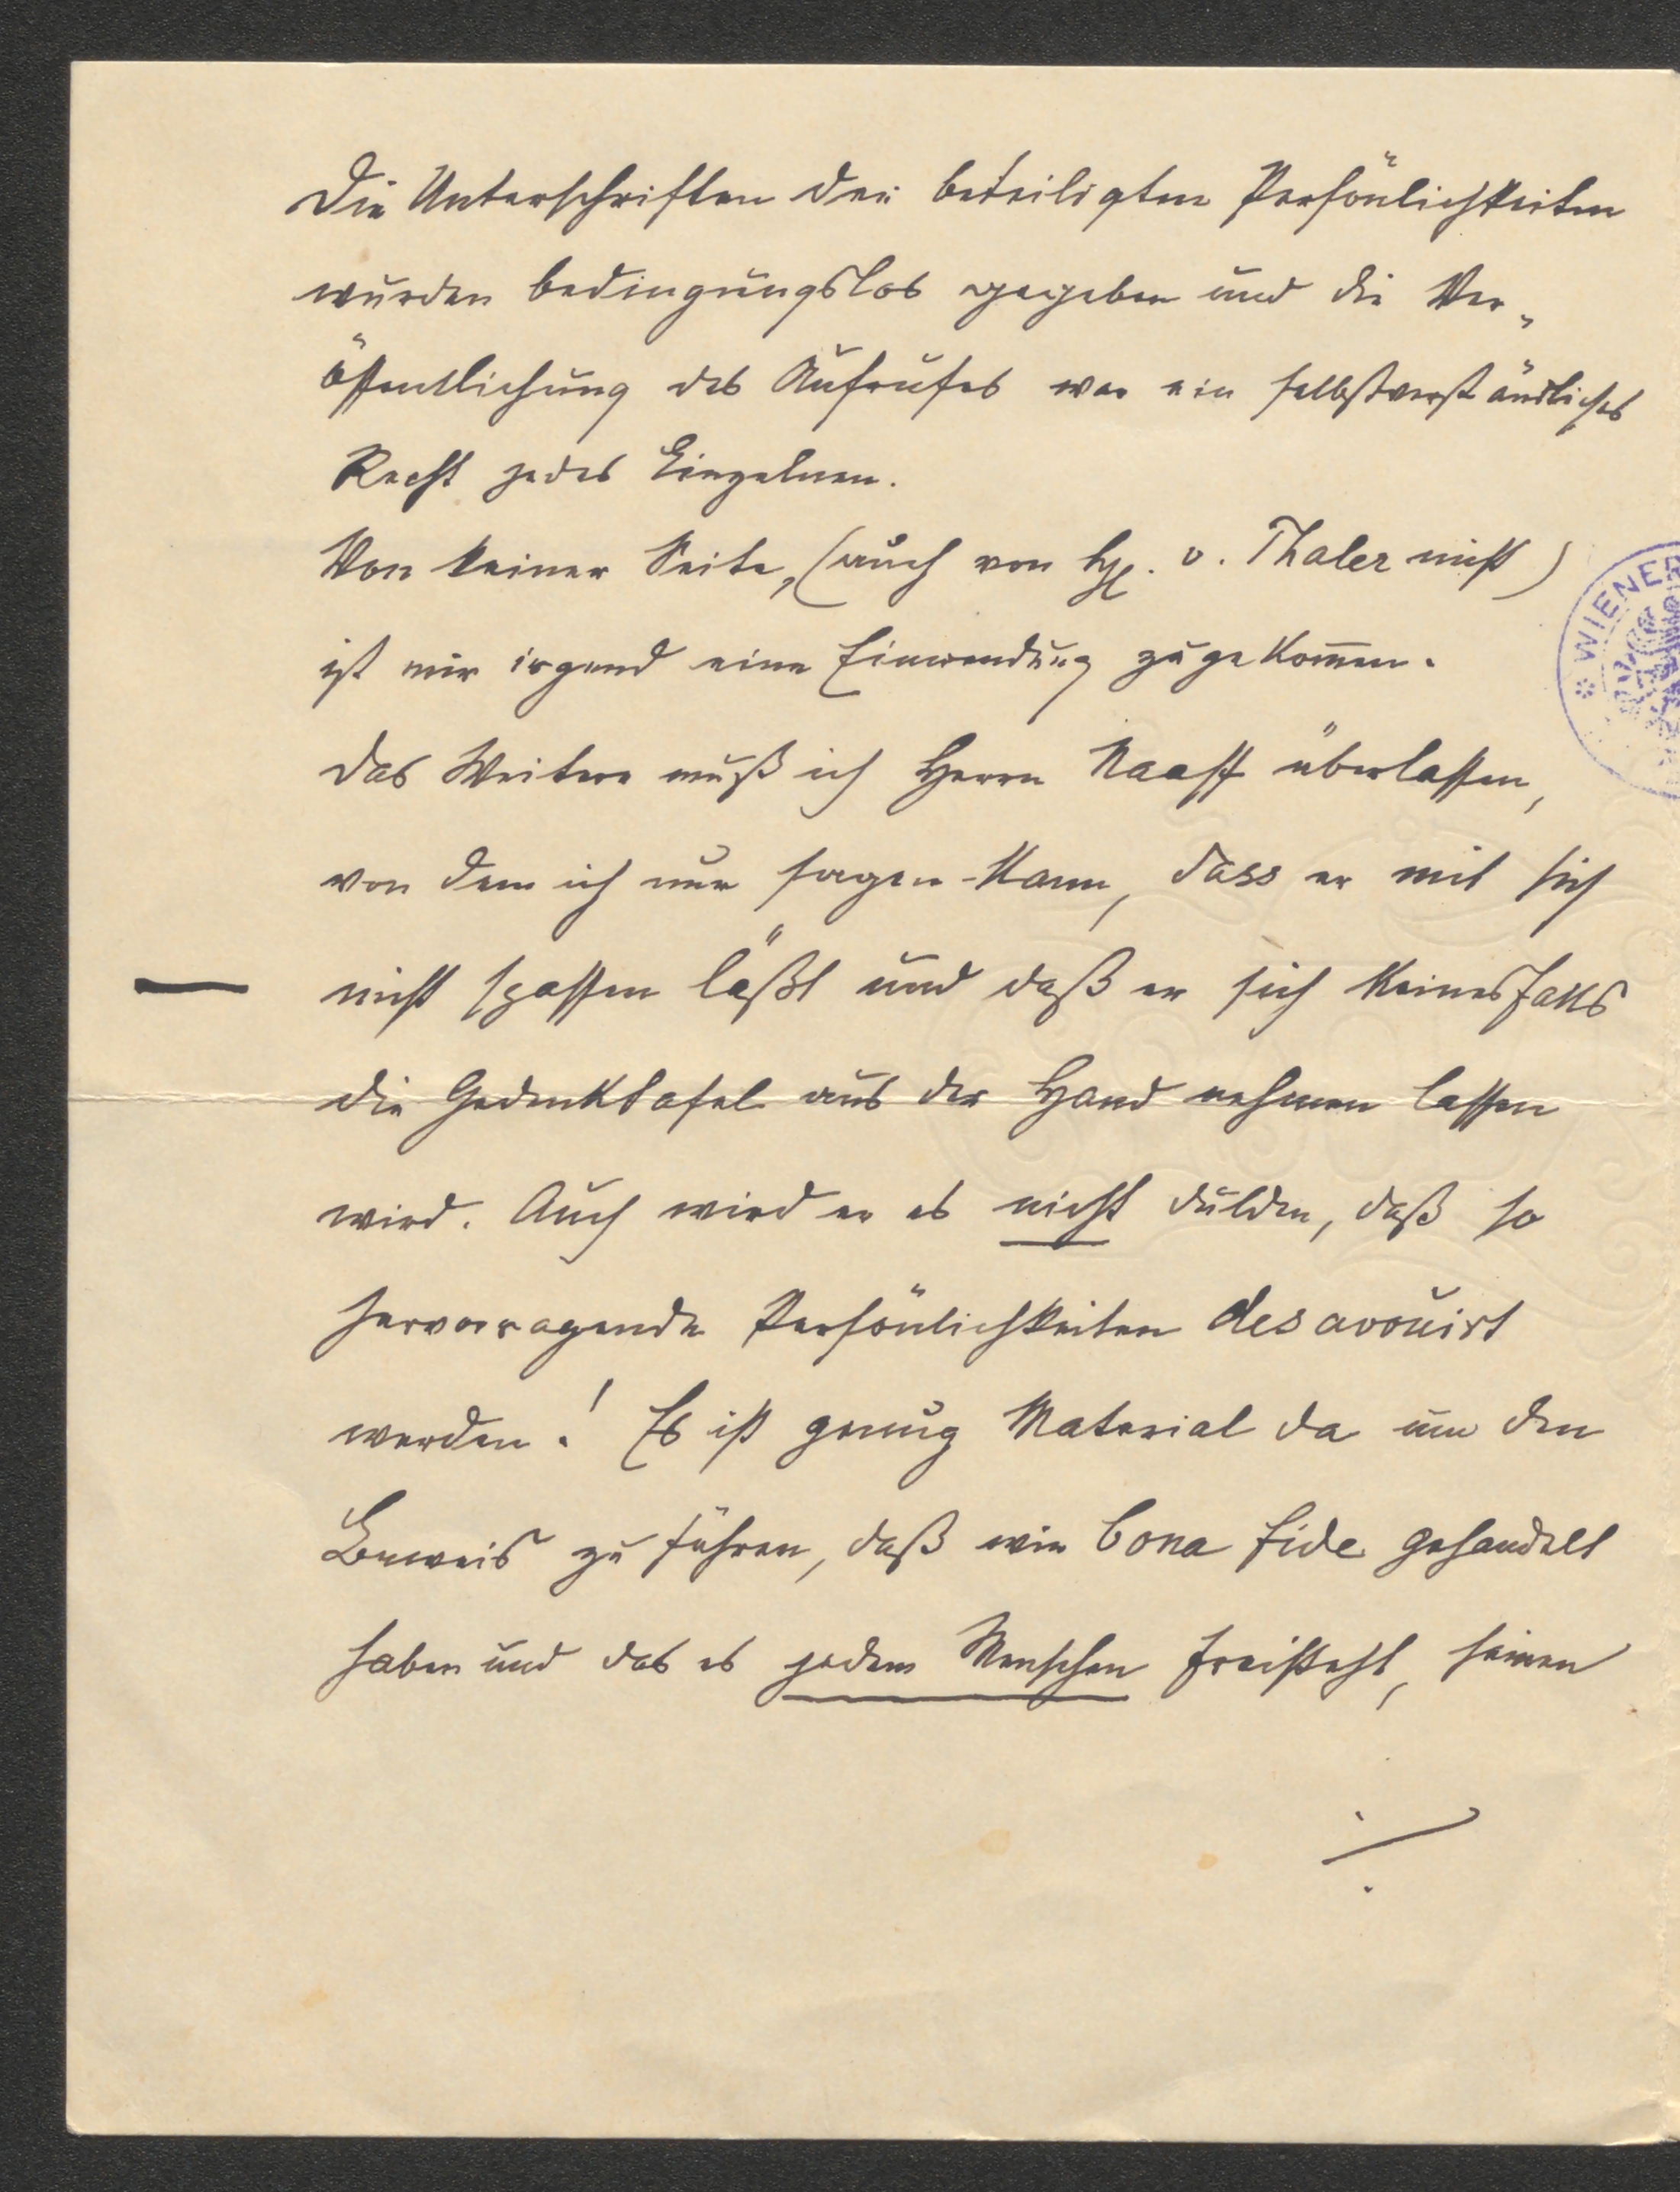 Die Unterschriften der beteiligten Persönlichkeiten
wurden bedingungslos gegeben und die Ver-
öffentlichung des Aufrufes war ein selbstverständliches
Recht jedes Einzelnen.
Von keiner Seite, (auch von H. v. Thaler nicht)
ist mir irgend eine Einwendung zugekommen.
Das Weitere muß ich Herrn Naaff überlassen,
von dem ich nur sagen kann, dass er mit sich
— nicht spassen läßt und daß er sich keinesfalls
die Gedenktafel aus der Hand nehmen lassen
wird. Auch wird er es nicht dulden, daß so
hervorragende Persönlichkeiten desavouirt
werden! Es ist genug Material da um den
Beweis zu führen, daß wir bona fide gehandelt
haben und das es jedem Menschen freisteht, seinen
./.
WIENER